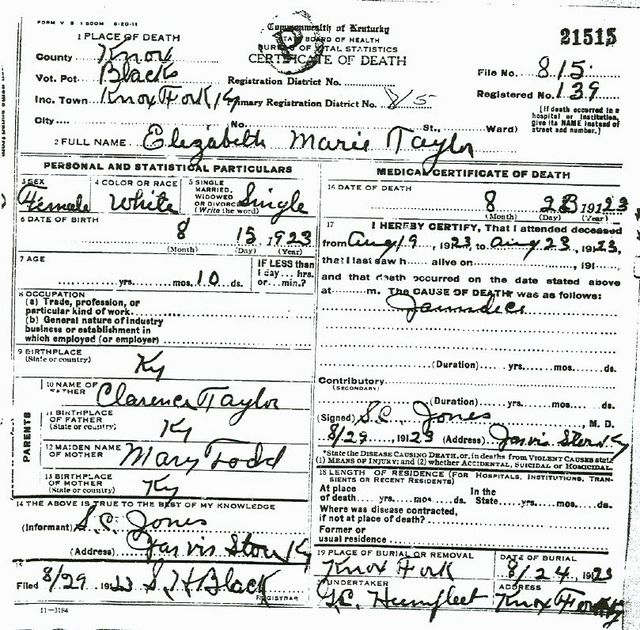 FORM V S 1 500M 6-20-11
Commonwealth of Kentucky
STATE BOARD OF HEALTH
BUREAU OF VITAL STATISTICS
CERTIFICATE OF DEATH
21515
1 PLACE OF DEATH
County Knox
Vot. Pct. Black
Inc. Town Knox Fork Ky
City
Registration District No.
Primary Registration District No. 85
No. St., Ward)
File No. 815
Registered No. 139
[If death occurred in a hospital or institution, give its NAME instead of street and number.]
2 FULL NAME Elizabeth Marie Taylor
PERSONAL AND STATISTICAL PARTICULARS
3 SEX Female
4 COLOR OR RACE White
5 SINGLE MARRIED, WIDOWED OR DIVORCED (Write the word) Single
6 DATE OF BIRTH 8 15 1923
(Month) (Day) (Year)
7 AGE
yrs. mos. 10 ds.
IF LESS than 1 day... hrs. or... min.?
8 OCCUPATION
(a) Trade, profession, or particular kind of work
(b) General nature of industry business or establishment in which employed (or employer)
9 BIRTHPLACE
(State or country) Ky
PARENTS
10 NAME OF FATHER Clarence Taylor
11 BIRTHPLACE OF FATHER
(State or country) Ky
12 MAIDEN NAME OF MOTHER Mary Todd
13 BIRTHPLACE OF MOTHER
(State or country) Ky
14 THE ABOVE IS TRUE TO THE BEST OF MY KNOWLEDGE
(Informant) S.C. Jones
(Address) Jarvis Store Ky
15
Filed 8/29 1923 S H Black
REGISTRAR
11-3184
MEDICAL CERTIFICATE OF DEATH
16 DATE OF DEATH
8 23 19123
(Month) (Day) (Year)
17 I HEREBY CERTIFY, That I attended deceased
from Aug 19, 1923 to Aug 23, 19123,
that I last saw h alive on , 191
and that death occurred on the date stated above
at m. The CAUSE OF DEATH was as follows:
Jaundice
(Duration) yrs. mos. ds.
Contributory
(SECONDARY)
(Duration) yrs. mos. ds.
(Signed) S.C. Jones, M. D.
8/29, 19123 (Address) Jarvis Store Ky
*State the DISEASE CAUSING DEATH, or, in deaths from VIOLENT CAUSES state
(1) MEANS OF INJURY; and (2) whether ACCIDENTAL, SUICIDAL or HOMICIDAL.
18 LENGTH OF RESIDENCE (FOR HOSPITALS, INSTITUTIONS, TRANSIENTS OR RECENT RESIDENTS)
At place of death yrs. mos. ds. In the State yrs. mos. ds.
Where was disease contracted, if not at place of death?
Former or usual residence
19 PLACE OF BURIAL OR REMOVAL
Knox Fork
DATE OF BURIAL
8/24 1923
UNDERTAKER
Humfleet
ADDRESS
Knox Fork Ky